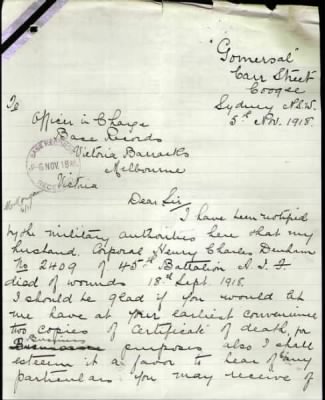 "Gomersal"
Carr Street
Coogee
Sydney N.S.W.
5th Nov. 1918.
To
Officer in Charge
Base Records
Victoria Barracks
Melbourne
Victria
6 NOV. 1918
Dear Sir/
I have been notified
by the military authorities here that my
husband. Corporal Henry Charles Denham
No 2409 of 45th Battalion A.I.F
died of wounds 18th Sept. 1918.
I should be glad if you would let
me have at your earliest convenience
two copies of Certificate of death, for
Business
purposes also I shall
esteem it a favor to hear of any
particulars you may receive of